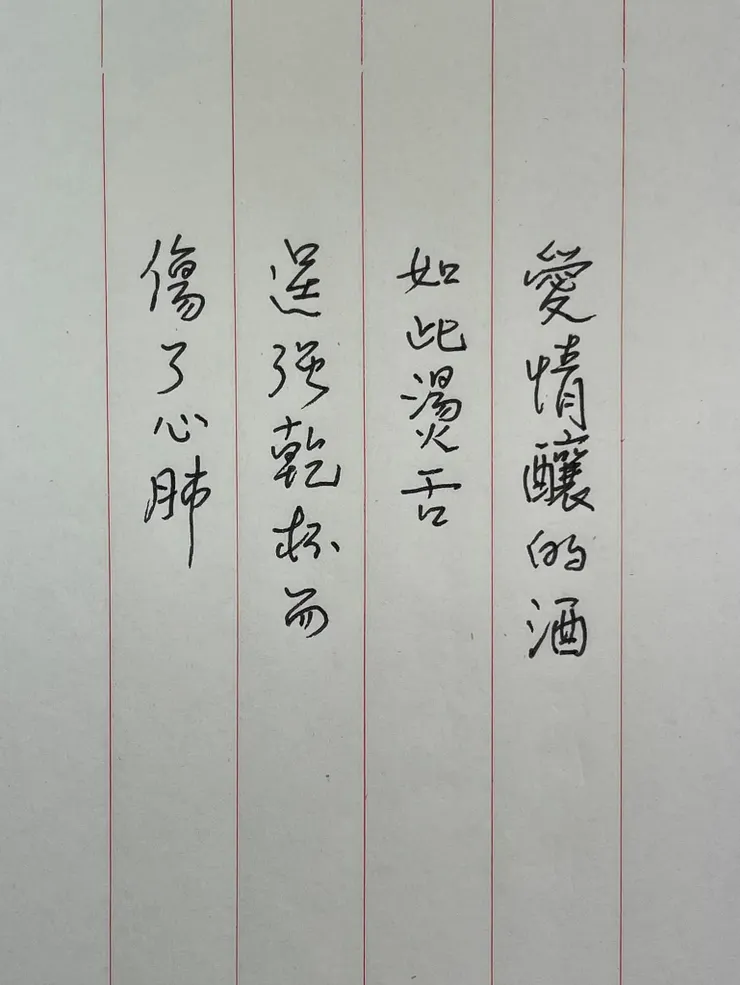 愛情釀的酒
如此燙舌
逞强乾杯而
傷了心肺